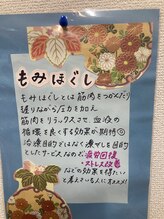 もみほぐし
もみほぐしとは筋肉をつかんだり
揺りながら圧力を加え
筋肉をリラックスさせ、血液の
循環を良くする効果が期待◎
治療目的ではなく癒しを目的
としたサービスなので疲労回復
ストレス改善
などの効果を得たい
と考えている人にオススメ!